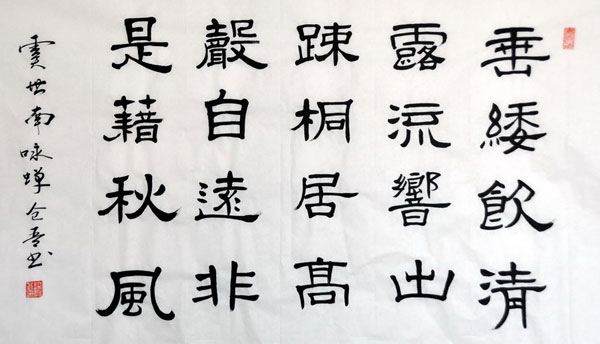 垂緌飲清
露流響出
踈桐居高
聲自遠非
是藉秋風
虞世南咏蝉